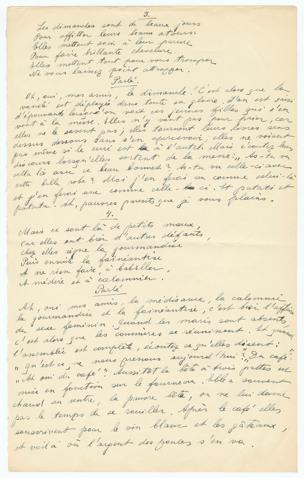 3.
Les dimanches sont de beaux jours
Pour afficher leurs beaux atours.
Elles mettent soin à leur parure
Pour faire brillante chevelure
Elles mettent tout pour vous tromper
Ne vous laissez point attraper.
Parlé.
Oh, oui, mes amis, le dimanche! C'est alors que la
vanité est déployée dans toute sa gloire, l'on est
d'épouvante lorsqu'on voit ces jeunes filles qui s'en
vont à la messe. Elles n'y vont pas pour prier, car
elles ne le savent pas; elles tournent leurs livres sens
dessus dessous sans s'en apercevoir; elles ne voient
pas même si le curé est à l'autel. Mais écoutez leurs
discours lorsqu'elles sortent de la messe, As-tu vu
celle là avec ce beau bonnet? As-tu vu celle-ci avec
cette belle robe? Moi, j'en ferai un comme celui-là
et j'en ferai une comme celle-ci. Et patati et
patata. Ah, pauvres parents que je vous plains.
4.
Mais ce sont là de petits maux,
Car elles ont bien d'autres défauts,
Chez elles règne la gourmandise
Puis ensuite la fainéantise
A ne rien faire, à babiller,
A médire et à calomnier.
Parlé
Ah, oui mes amis, la médisance, la calomnie,
la gourmandise et la fainéantise, c'est bien
du sexe féminin. Quand les maris sont absents,
c'est alors que les commères se réunissent. Et quand
l'assemblée est complète, écoutez ce qu'elles disent:
"Qu'est-ce que nous prenons aujourd'hui?" "Du café."
"Ah oui du café". Aussitôt la bête à trois pattes est
mise en fonction sur le fourneau. Elle a souvent
chaud au ventre, la pauvre bête, on ne lui donne
pas le temps de se rouiller. Après le café elles
souscrivent pour le vin blanc et les gâteaux,
et voilà où l'argent des poules s'en va.